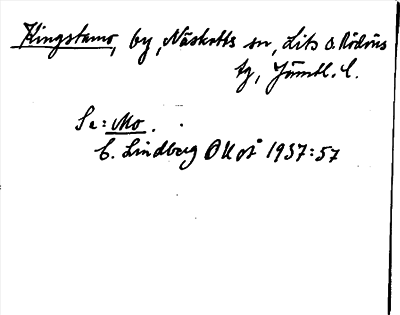 Kingstamo, by, Näskotts sn, Lits o. Rödöns
tg, Jämtl. l.
Se: Mo.
C. Lindberg OUoÅ 1937:57